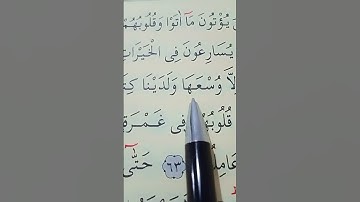 يُؤْتُونَ مَآ اٰتَوْا وَقُلُوبُهُمْ
يُسَارِعُونَ فِى الْخَيْرَاتِ
وُسْعَهَا وَلَدَيْنَا
قُلُوبُهُمْ فِى غَمْرَةٍ
﴿٦٣﴾ حَتّٰٓى